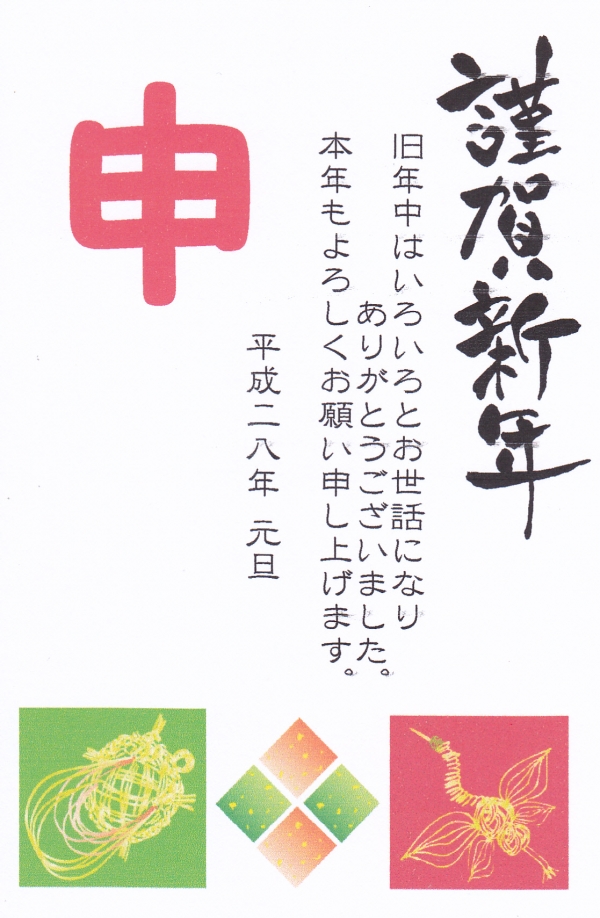 謹賀新年
旧年中はいろいろとお世話になり
ありがとうございました。
本年もよろしくお願い申し上げます。
平成二八年 元旦
申